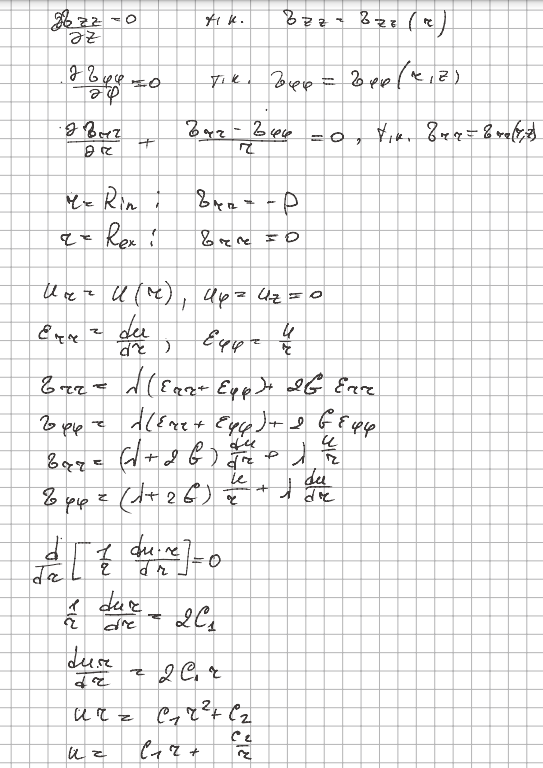 ∂σzz/∂z = 0 т.к. σzz = σzz(r)
∂σφφ/∂φ = 0 т.к. σφφ = σφφ(r,z)
∂σrr/∂r + (σrr - σφφ)/r = 0, т.к. σrr = σrr(r,z)
r = Rin: σrr = -p
r = Rex: σrr = 0
ur = u(r), uφ = uz = 0
εrr = du/dr, εφφ = u/r
σrr = λ(εrr + εφφ) + 2G εrr
σφφ = λ(εrr + εφφ) + 2G εφφ
σrr = (λ + 2G) du/dr + λ u/r
σφφ = (λ + 2G) u/r + λ du/dr
d/dr [1/r du·r/dr] = 0
1/r dur/dr = 2C1
du·r/dr = 2C1 r
ur = C1 r² + C2
u = C1 r + C2/r